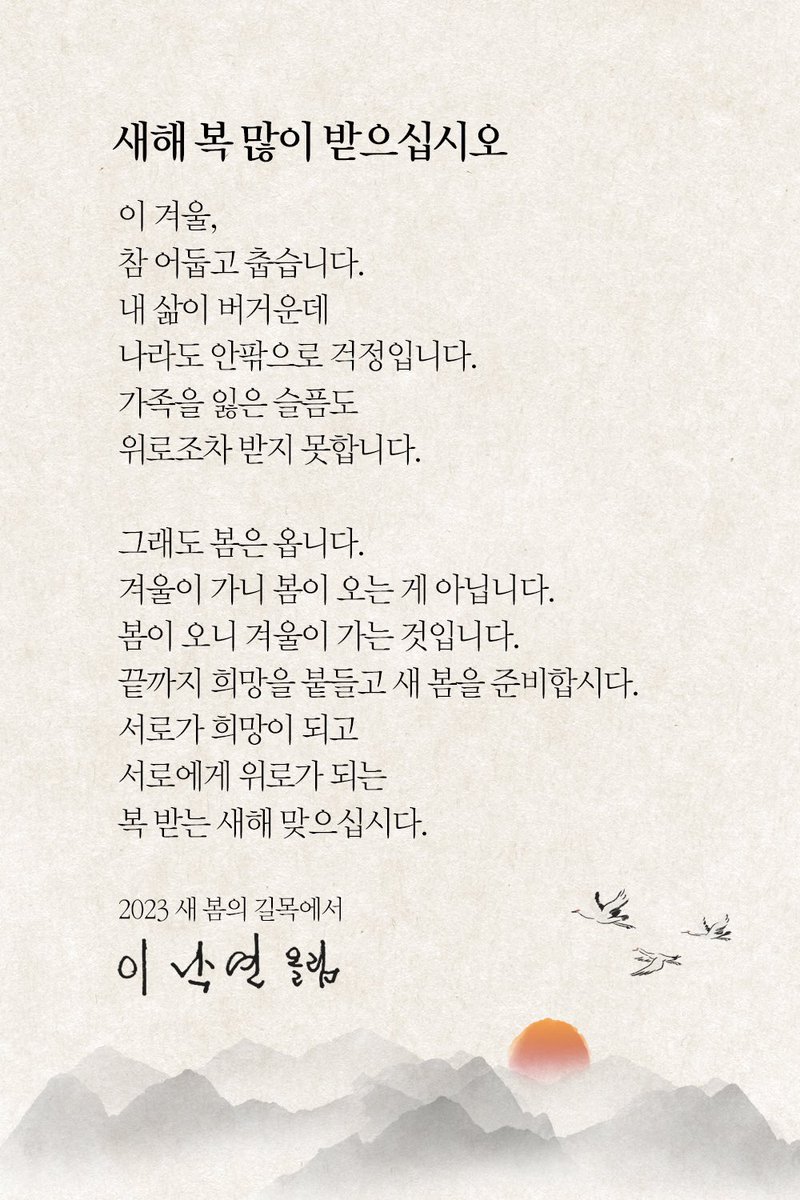 새해 복 많이 받으십시오
이 겨울,
참 어둡고 춥습니다.
내 삶이 버거운데
나라도 안팎으로 걱정입니다.
가족을 잃은 슬픔도
위로조차 받지 못합니다.
그래도 봄은 옵니다.
겨울이 가니 봄이 오는 게 아닙니다.
봄이 오니 겨울이 가는 것입니다.
끝까지 희망을 붙들고 새 봄을 준비합시다.
서로가 희망이 되고
서로에게 위로가 되는
복 받는 새해 맞으십시다.
2023 새 봄의 길목에서
이낙연 올림